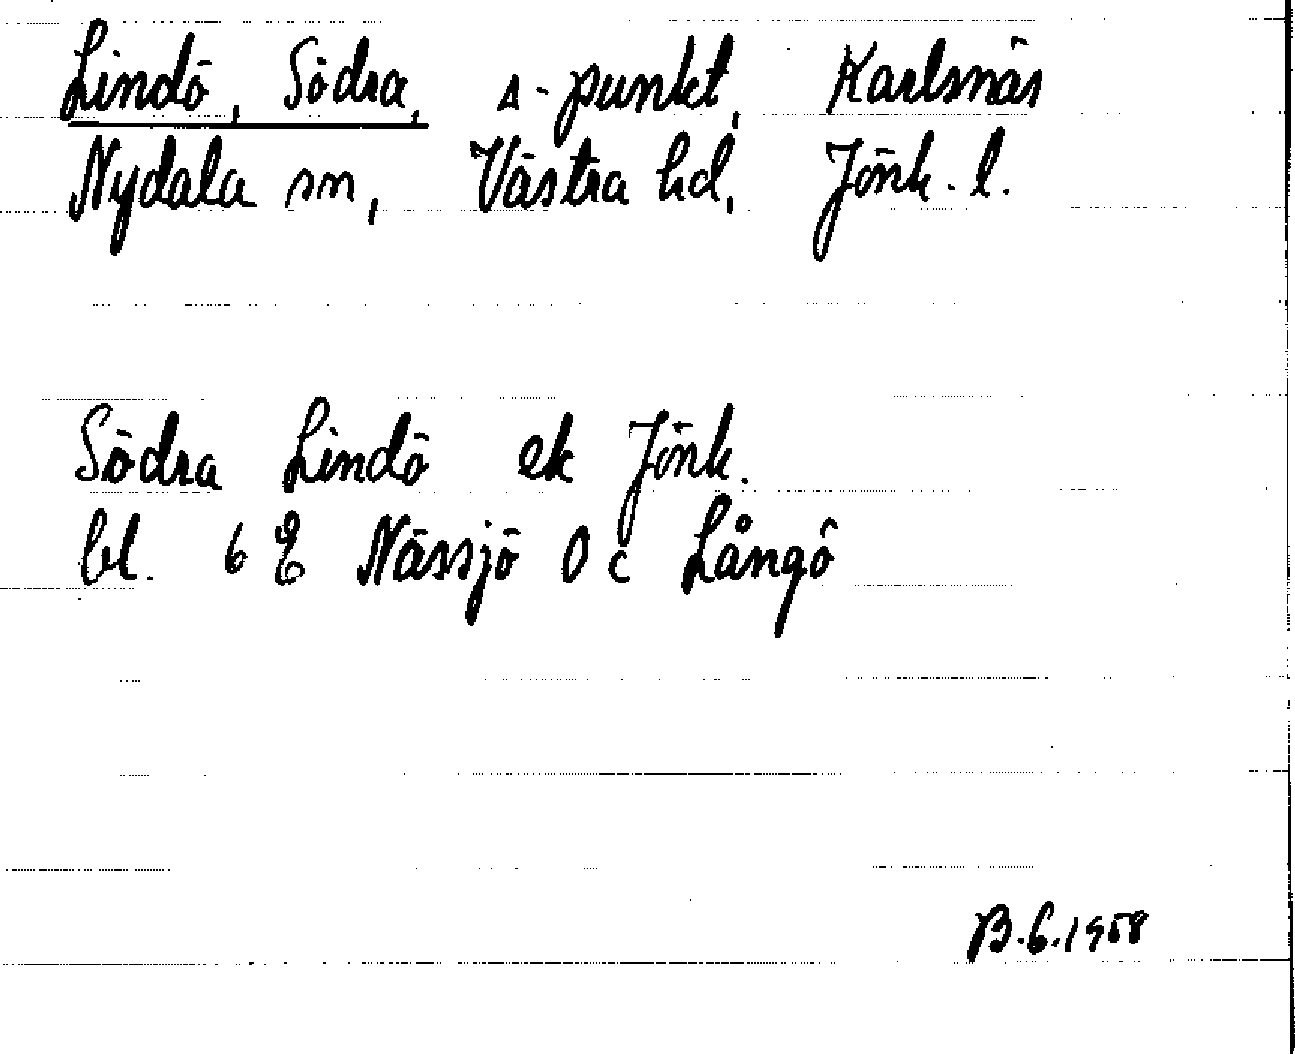 Lindö, Södra, Δ-punkt, Karlsnäs
Nydala sn, Västra hd, Jönk. l.
Södra Lindö ek Jönk.
bl. 6 E Nässjö 0 c Långö
B.G. 1958